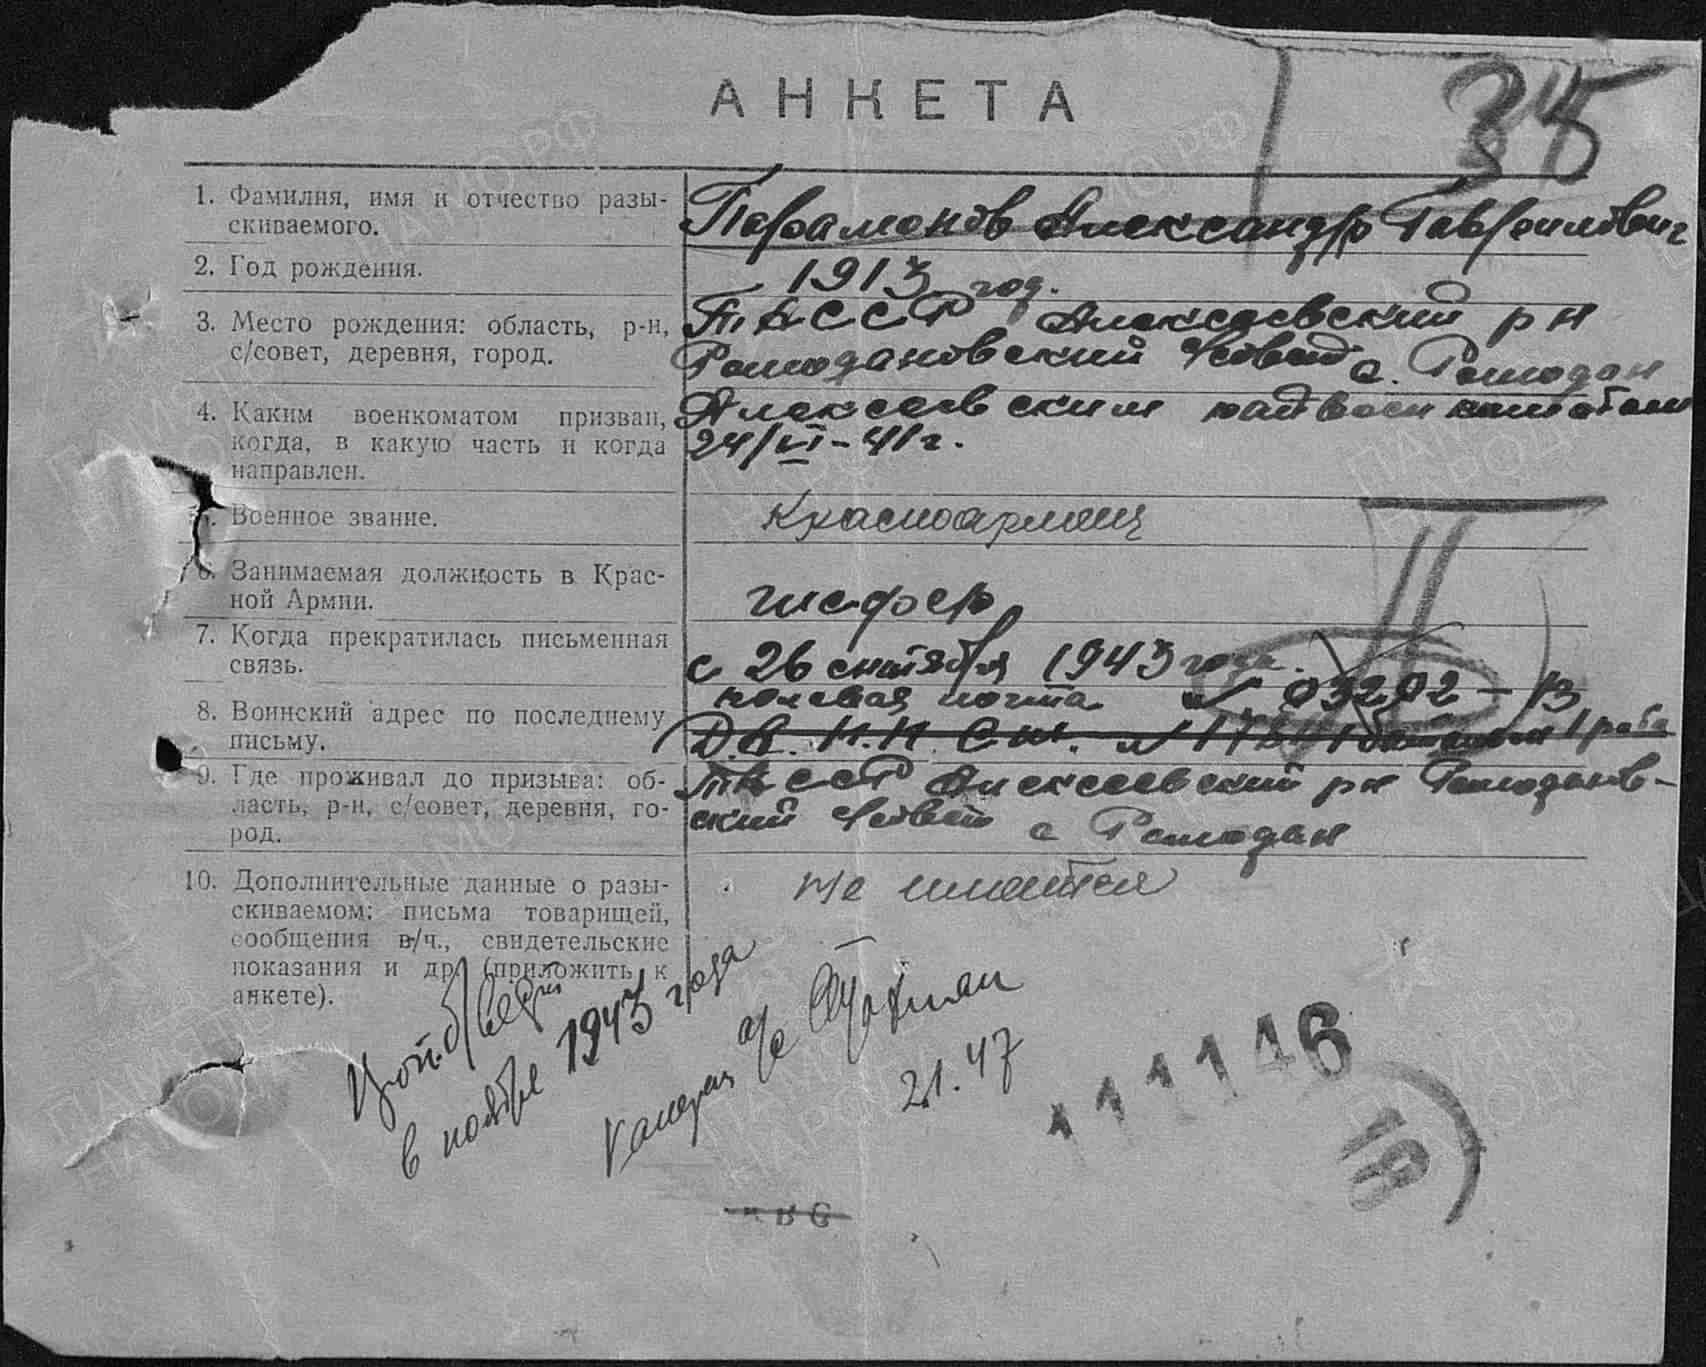 АНКЕТА
345
1. Фамилия, имя и отчество разы-
скиваемого.
Парамонов Александр Гаврилович
2. Год рождения.
1913 год.
3. Место рождения: область, р-н,
с/совет, деревня, город.
ТАССР Алексеевский р н
Ромодановский с/совет с. Ромодан
4. Каким военкоматом призван,
когда, в какую часть и когда
направлен.
Алексеевским райвоенкоматом
24/VI-41 г.
5. Военное звание.
Красноармеец
6. Занимаемая должность в Крас-
ной Армии.
шофер
7. Когда прекратилась письменная
связь.
с 26 сентября 1943 года.
8. Воинский адрес по последнему
письму.
полевая почта № 03202-В
9. Где проживал до призыва: об-
ласть, р-н, с/совет, деревня, го-
род.
ТАССР Алексеевский рн Ромоданов-
ский с/совет с Ромодан
10. Дополнительные данные о разы-
скиваемом: письма товарищей,
сообщения в/ч., свидетельские
показания и др. (приложить к
анкете).
Не имеется
в ноябре 1943 года
21.47
111146
18